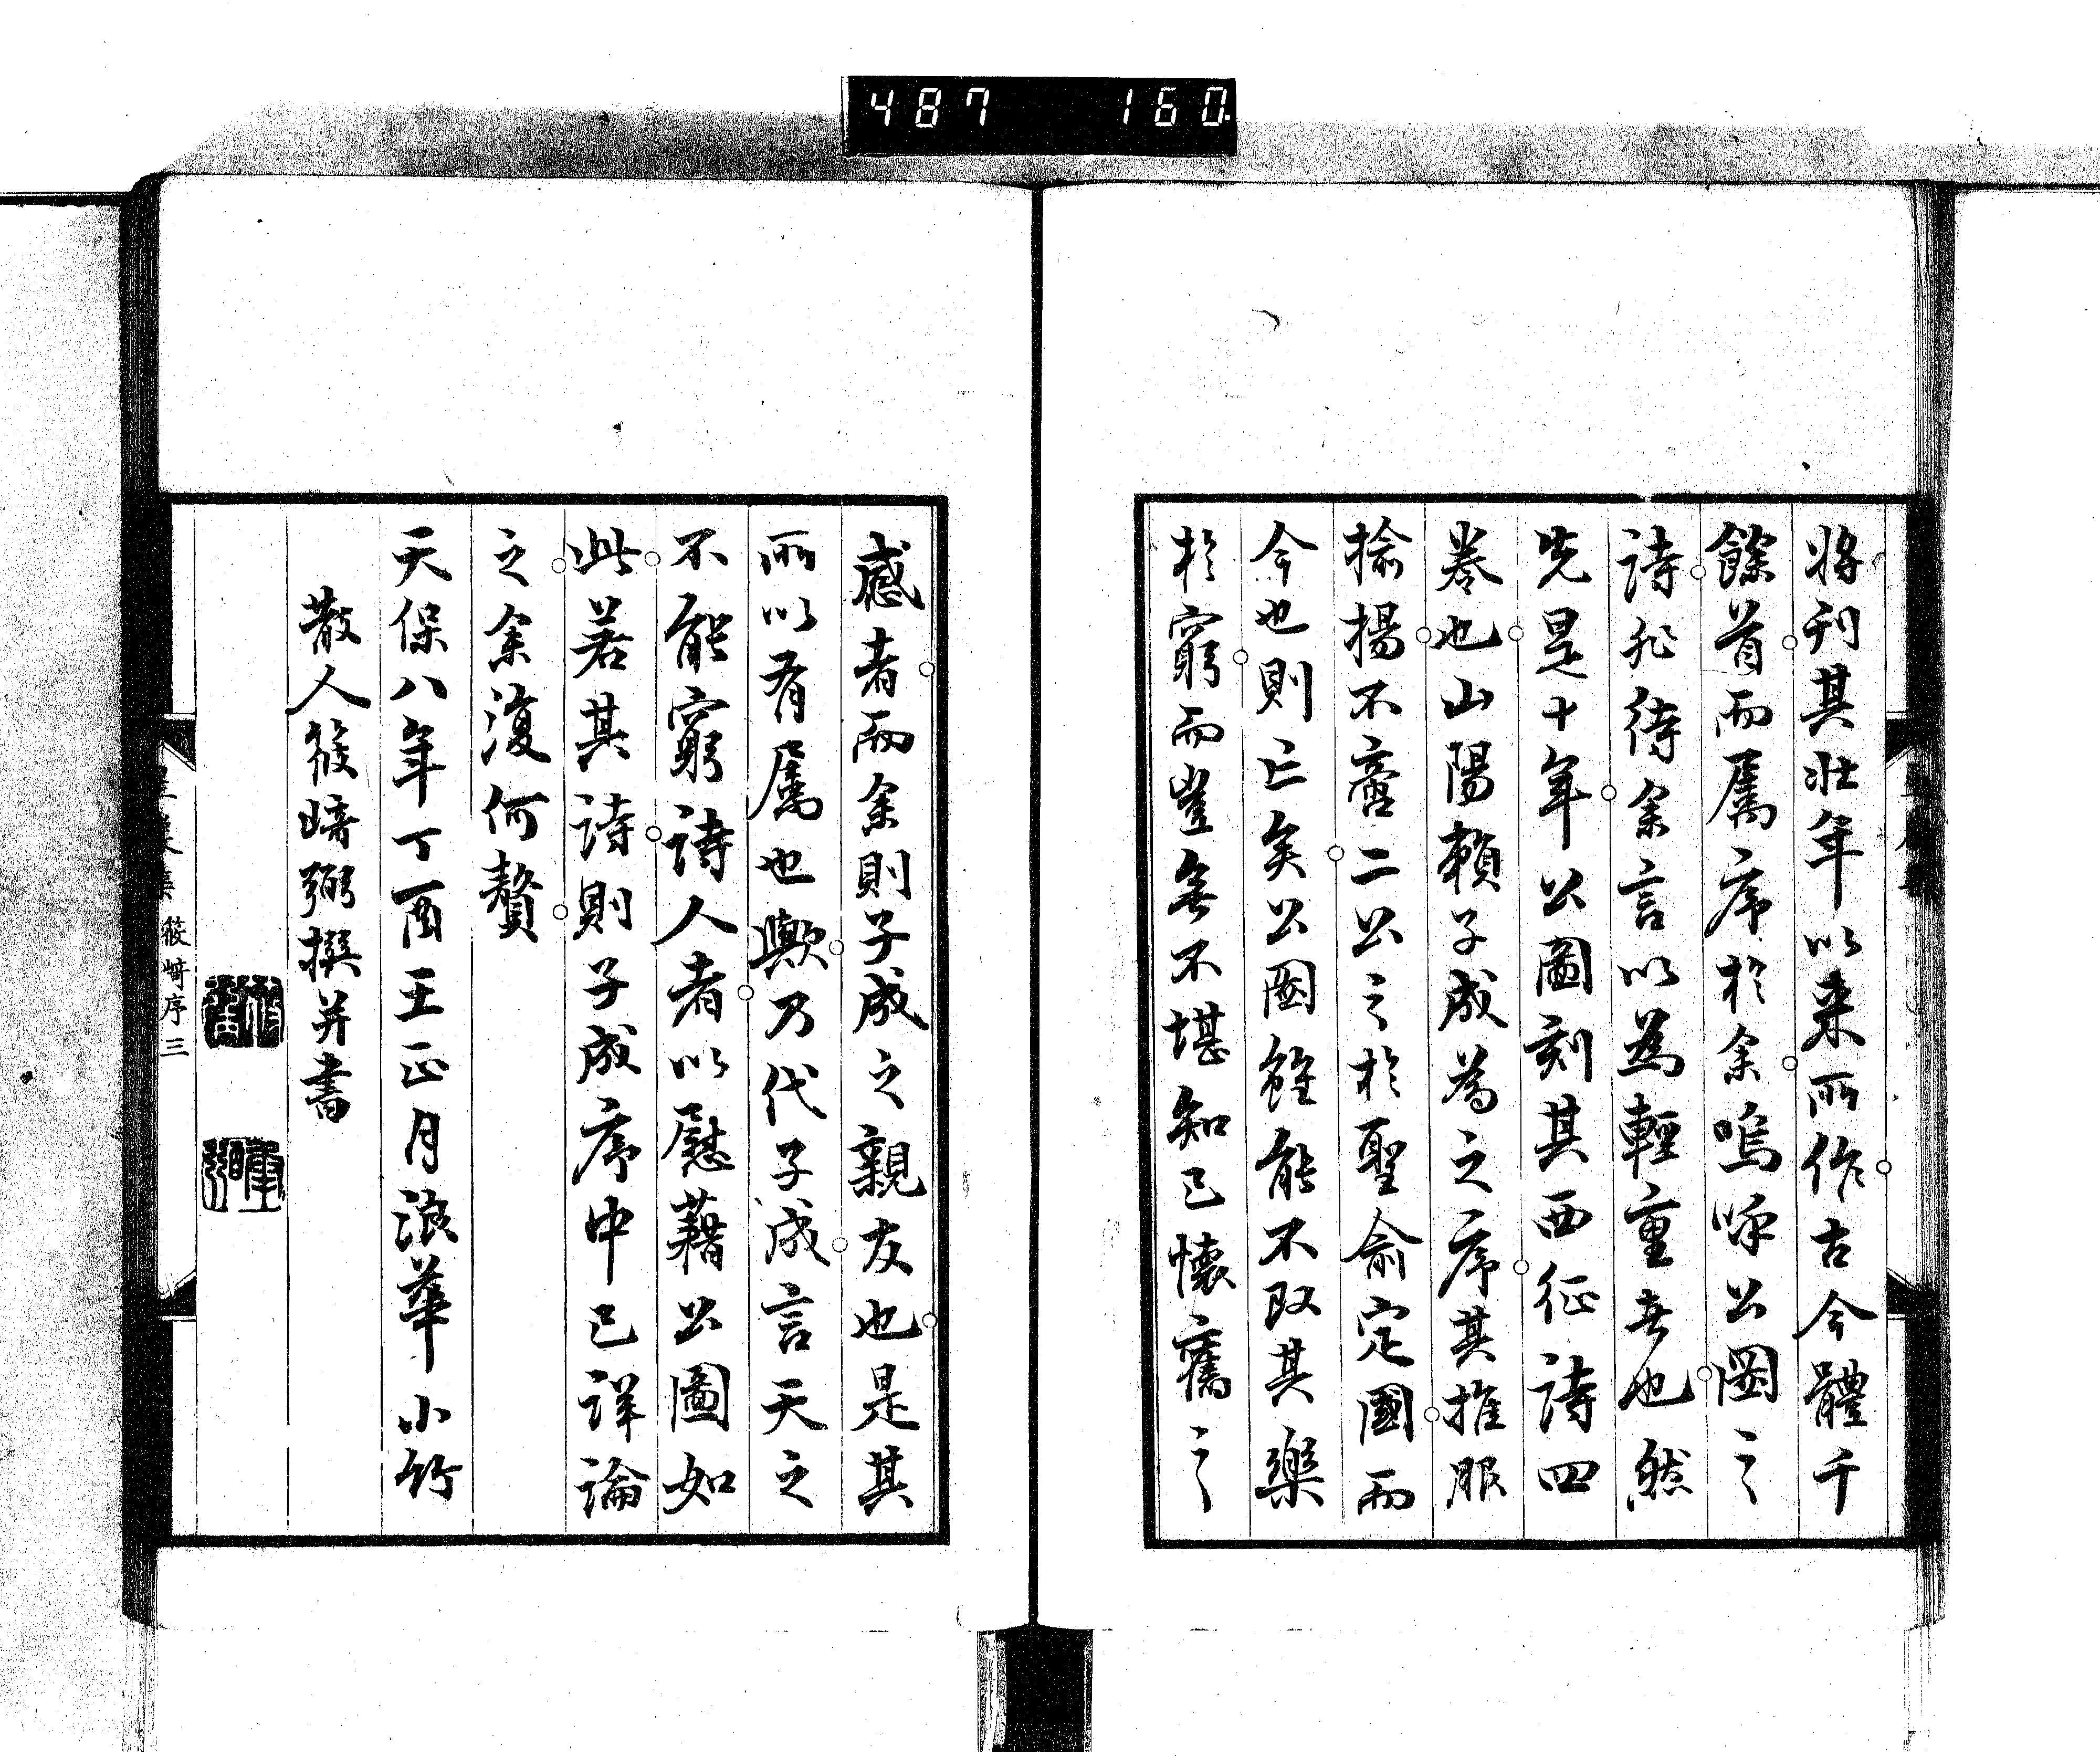 487 160
將刊其壯年以来所作古今體千
餘首而属序於余嗚呼公圖之
詩非待余言以為輕重者也然
先是十年公圖刻其西征詩四
卷也山陽賴子成為之序其推服
揄揚不啻二公之於聖俞定國而
今也則亡矣公圖雖能不改其樂
於窮而豈無不堪知己懷舊之
感者而余則子成之親友也是其
所以有属也歟乃代子成言天之
不能窮詩人者以慰藉公圖如
此若其詩則子成序中已詳論
之余復何贅
天保八年丁酉王正月浪華小竹
散人筱﨑弼撰并書
筱﨑序 三